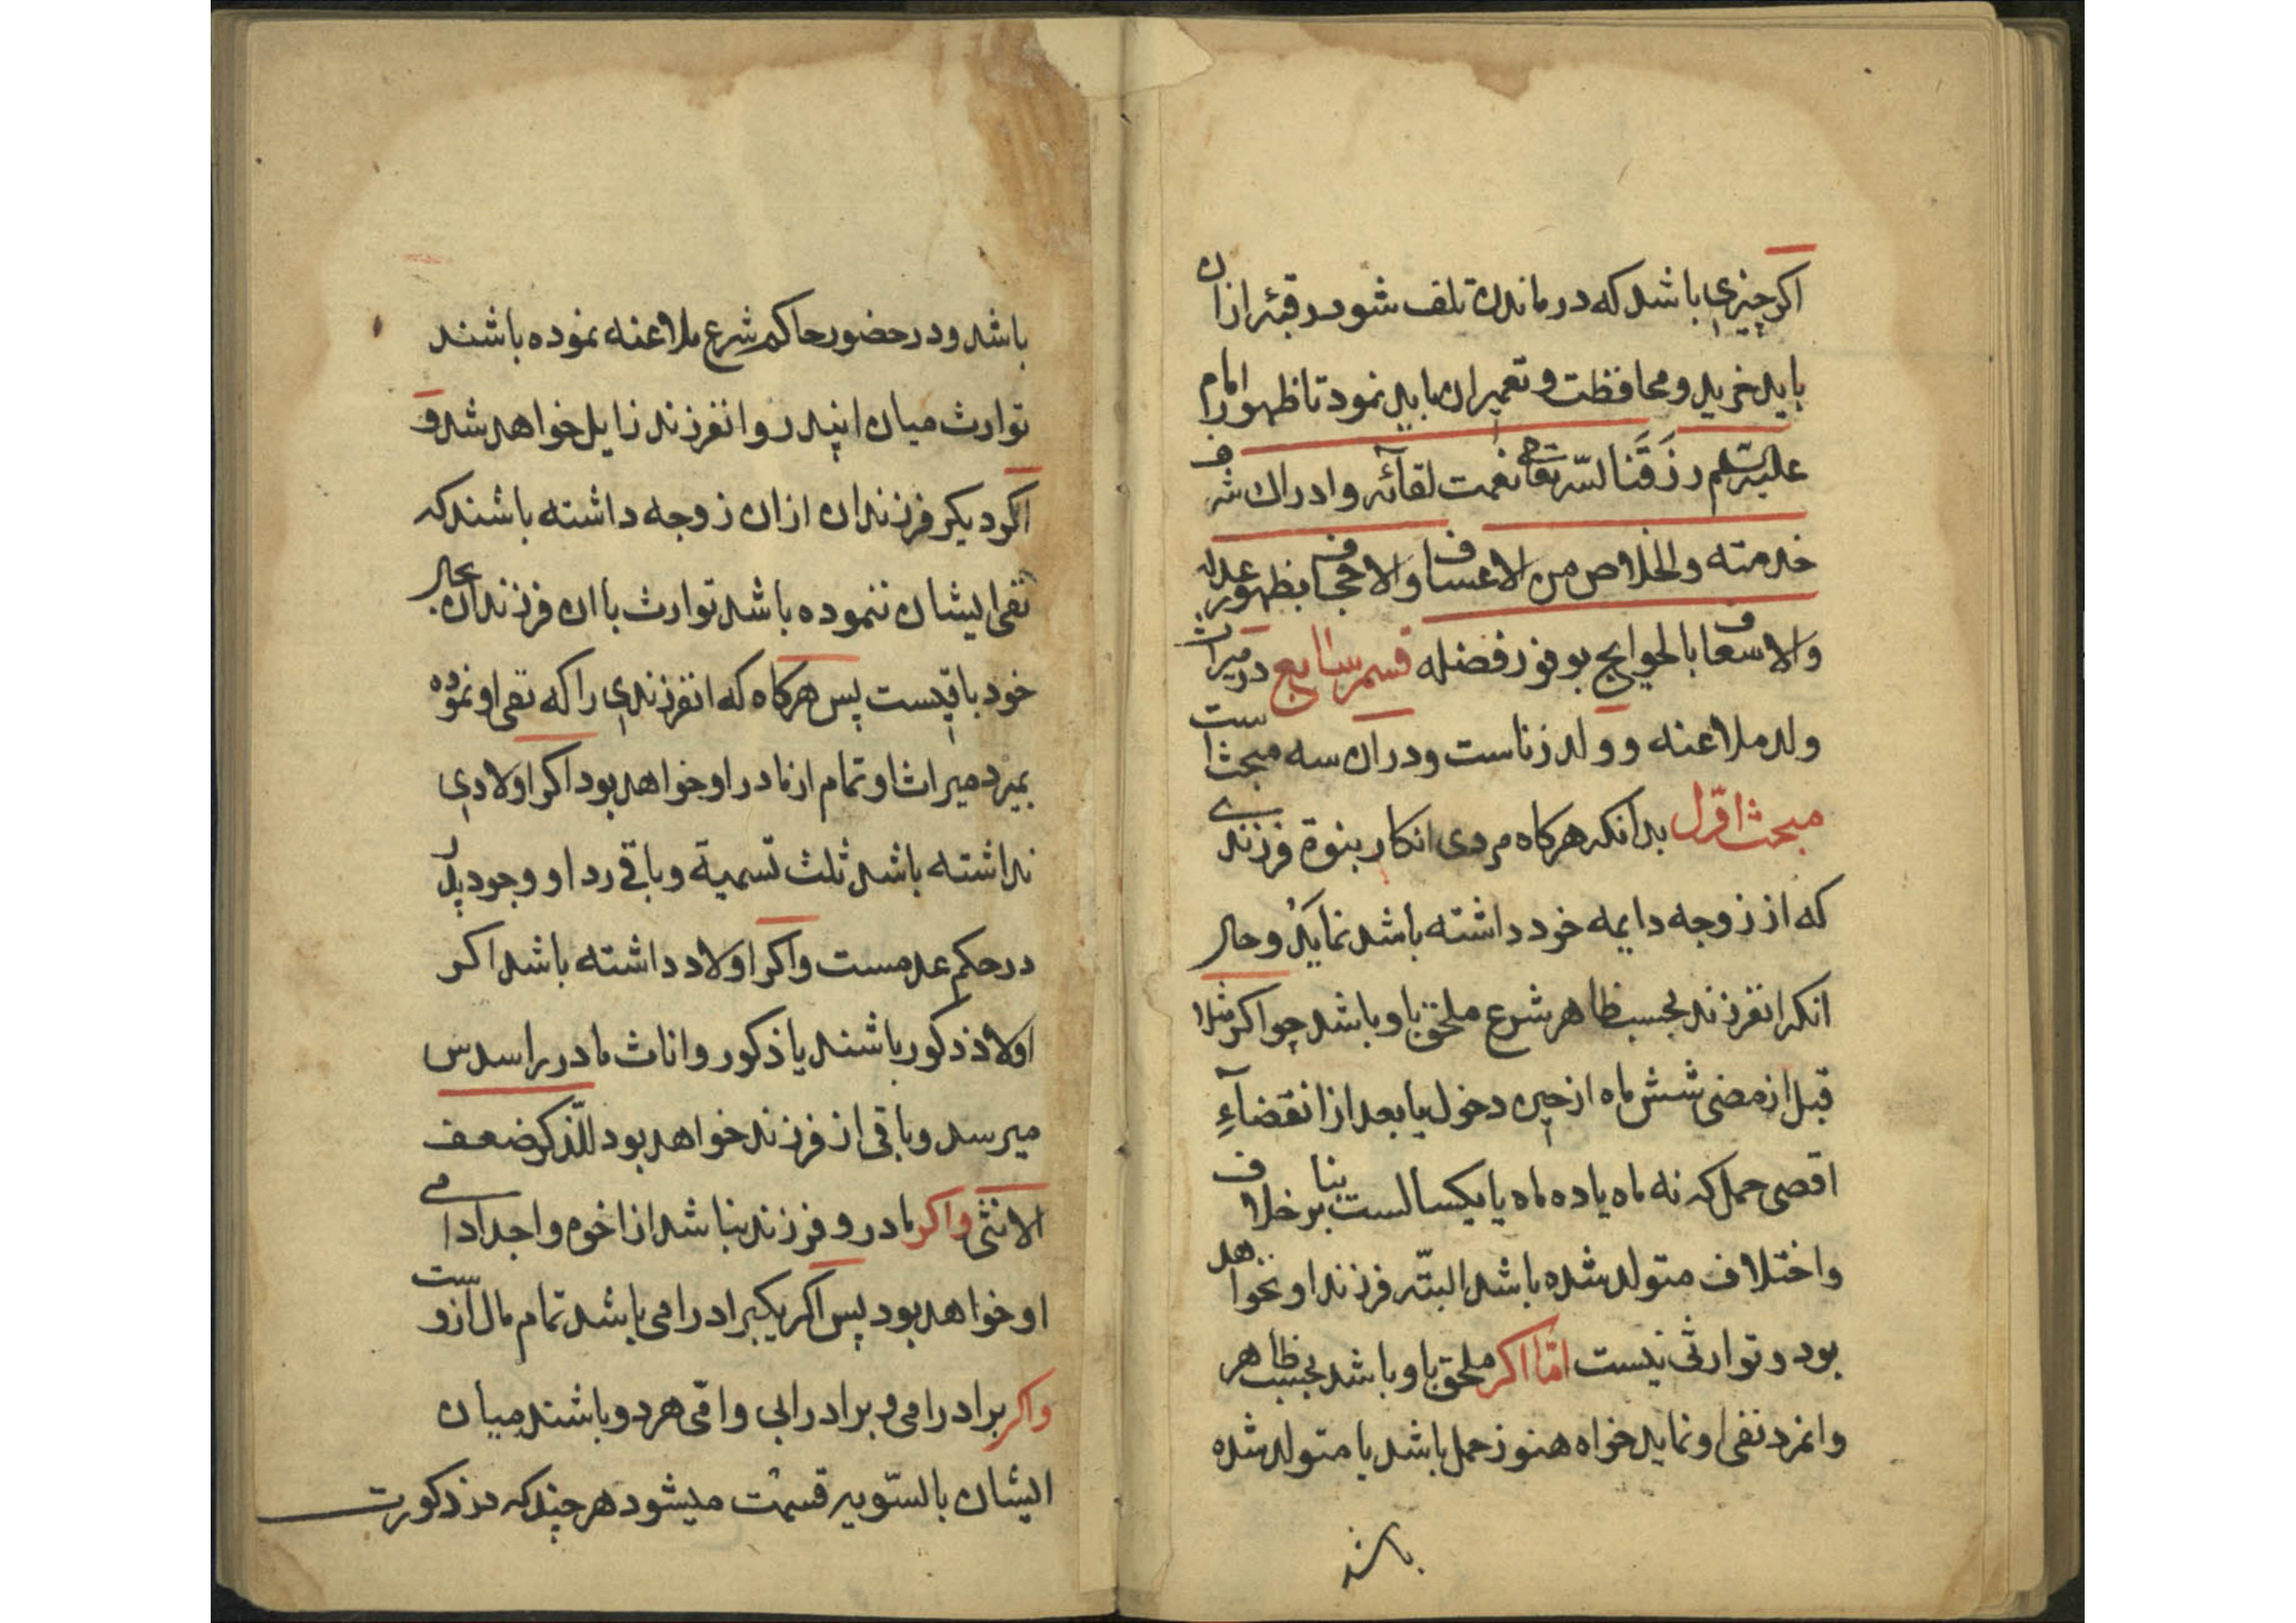 اکر چیزی باشد که در ماندن تلف شود رقبه ازان
باید خرید و محافظت و تعمیر ان باید نمود تا ظهور امام
علیه السلم رزقنا الله تعالی نعمت لقائه و ادراك شرف
خدمته والخلاص من الاعساف والاحجاف بظهور عدله
والاسعاف بالحوایج بوفور فضله قسم سابع در میراث
ولد ملاعنه و ولد زناست و دران سه مبحث است
مبحث اوّل بدانکه هرکاه مردی انکار بنوة فرزندی
که از زوجه دایمه خود داشته باشد نماید و حال
انکه انفرزند بحسب ظاهر شرع ملحق باو باشد چو اکر مثلا
قبل از مضی شش ماه از حین دخول یا بعد از انقضاءِ
اقصی حمل که نه ماه یا ده ماه یا یکسالست بنا بر خلاف
واختلاف متولد شده باشد البتّه فرزند او نخواهد
بود و توارثی نیست امّا اکر ملحق باو باشد بحسب ظاهر
وانمرد نفی او نماید خواه هنوز حمل باشد یا متولد شده
باشد
باشد و در حضور حاکم شرع ملاعنه نموده باشند
توارث میان انپدر و انفرزند زایل خواهد شد و
اکر دیکر فرزندان ازان زوجه داشته باشند که
نفی ایشان ننموده باشد توارث با ان فرزندان بحال
خود باقیست پس هرکاه که انفرزندی را که نفی او نموده
بمیرد میراث او تمام از مادر او خواهد بود اکر اولادی
نداشته باشد ثلث تسمیة و باقی رد او وجود پدر
در حکم عدمست واکر اولاد داشته باشد اکر
اولاد ذکور باشند یا ذکور و اناث مادر را سدس
میرسد و باقی از فرزند خواهد بود للذّکر ضعف
الانثی واکر مادر و فرزند نباشد از اخوه و اجداد امی
او خواهد بود پس اکر یکبرادر امی باشد تمام مال ازوست
واکر برادر امی و برادر ابی و امّی هر دو باشند میان
ایشان بالسّویه قسمت میشود هرچند که در ذکورت